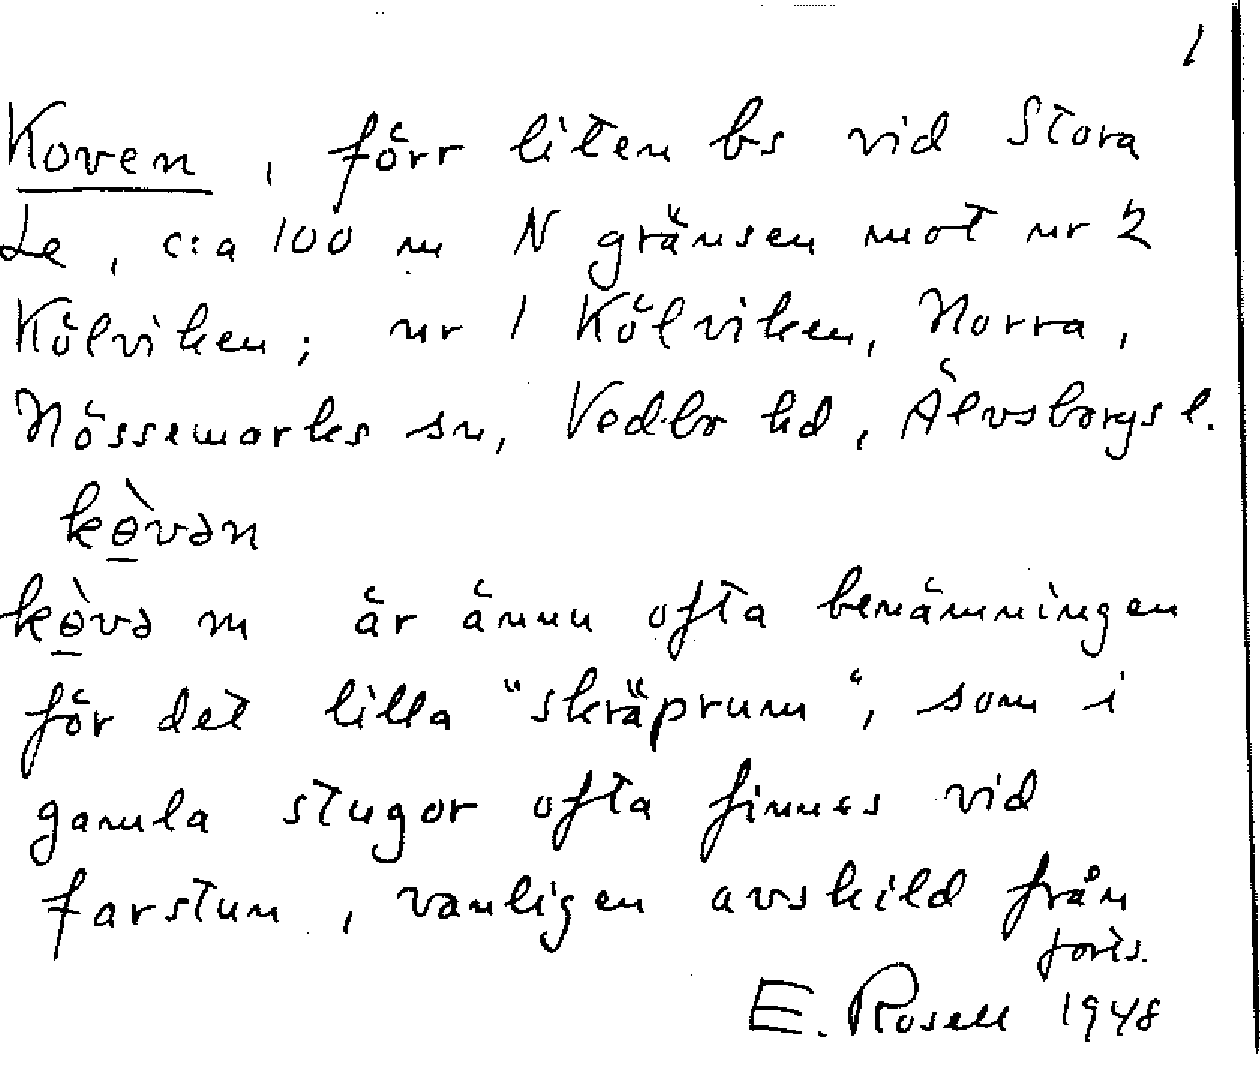 1
Koven, förr liten bs vid Stora
Le, c:a 100 m N gränsen mot nr 2
Kölviken; nr 1 Kölviken, Norra,
Nössemarks sn, Vedbo hd, Älvsborgs l.
kɵ̀vən
kɵ̀və m är ännu ofta benämningen
för det lilla "skräprum", som i
gamla stugor ofta finnes vid
farstun, vanligen avskild från
forts.
E. Rosell 1948